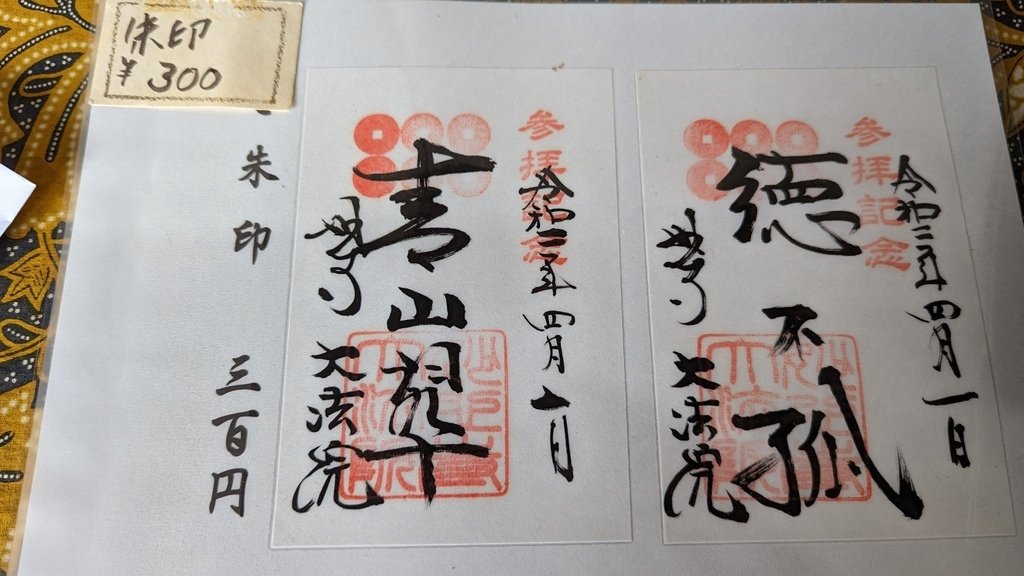 朱印
¥300
参拝記念
令和二年四月一日
徳不孤
大法院
参拝記念
令和二年四月一日
青山翠
大法院
朱印 三百円